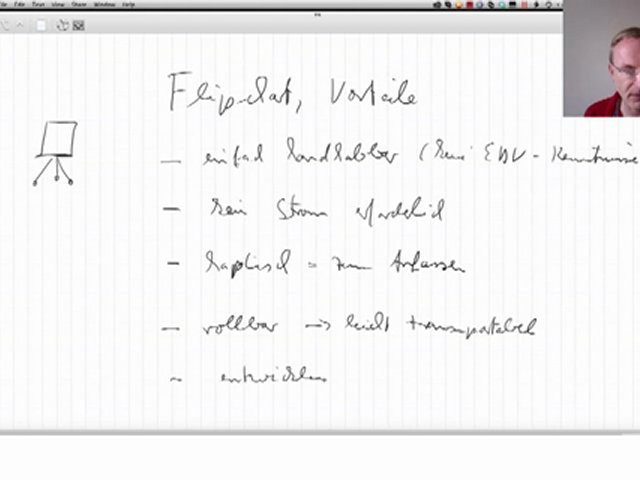 File Edit Tools View Share Window Help
Flipchart, Vorteile
– einfach handhabbar (keine EDV-Kenntnisse
– kein Strom erforderlich
– haptisch = zum Anfassen
– rollbar → leicht transportabel
– entwickeln